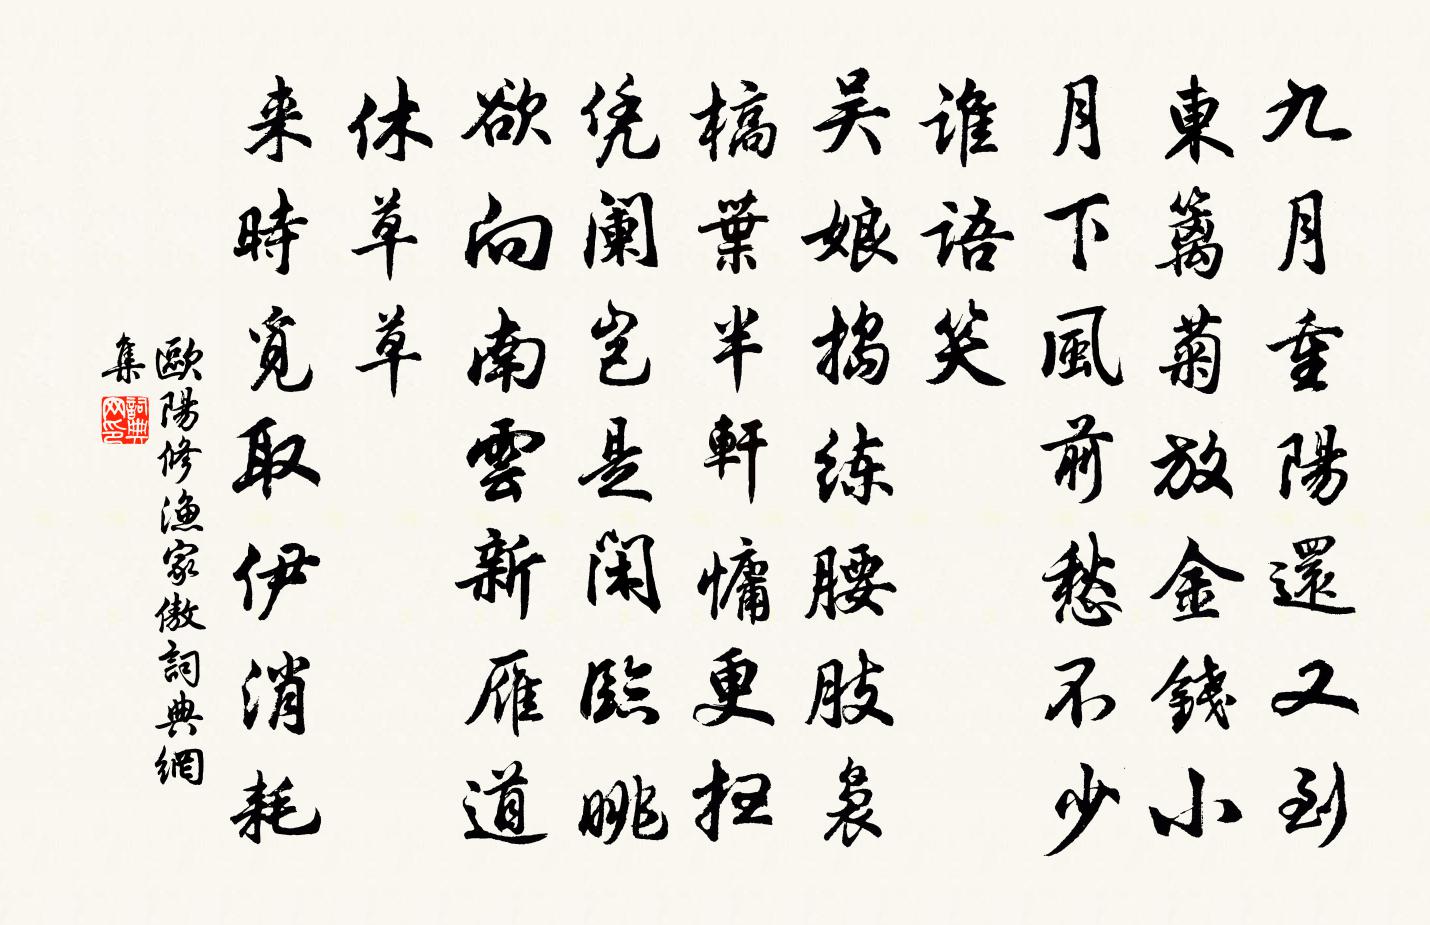 九月重陽還又到
東籬菊放金錢小
月下風前愁不少
誰語笑
吴娘搗练腰肢裊
槁葉半軒慵更扫
凭阑岂是閑臨眺
欲向南雲新雁道
休草草
来時覓取伊消耗
歐陽修漁家傲詞典網
集
詞典网印